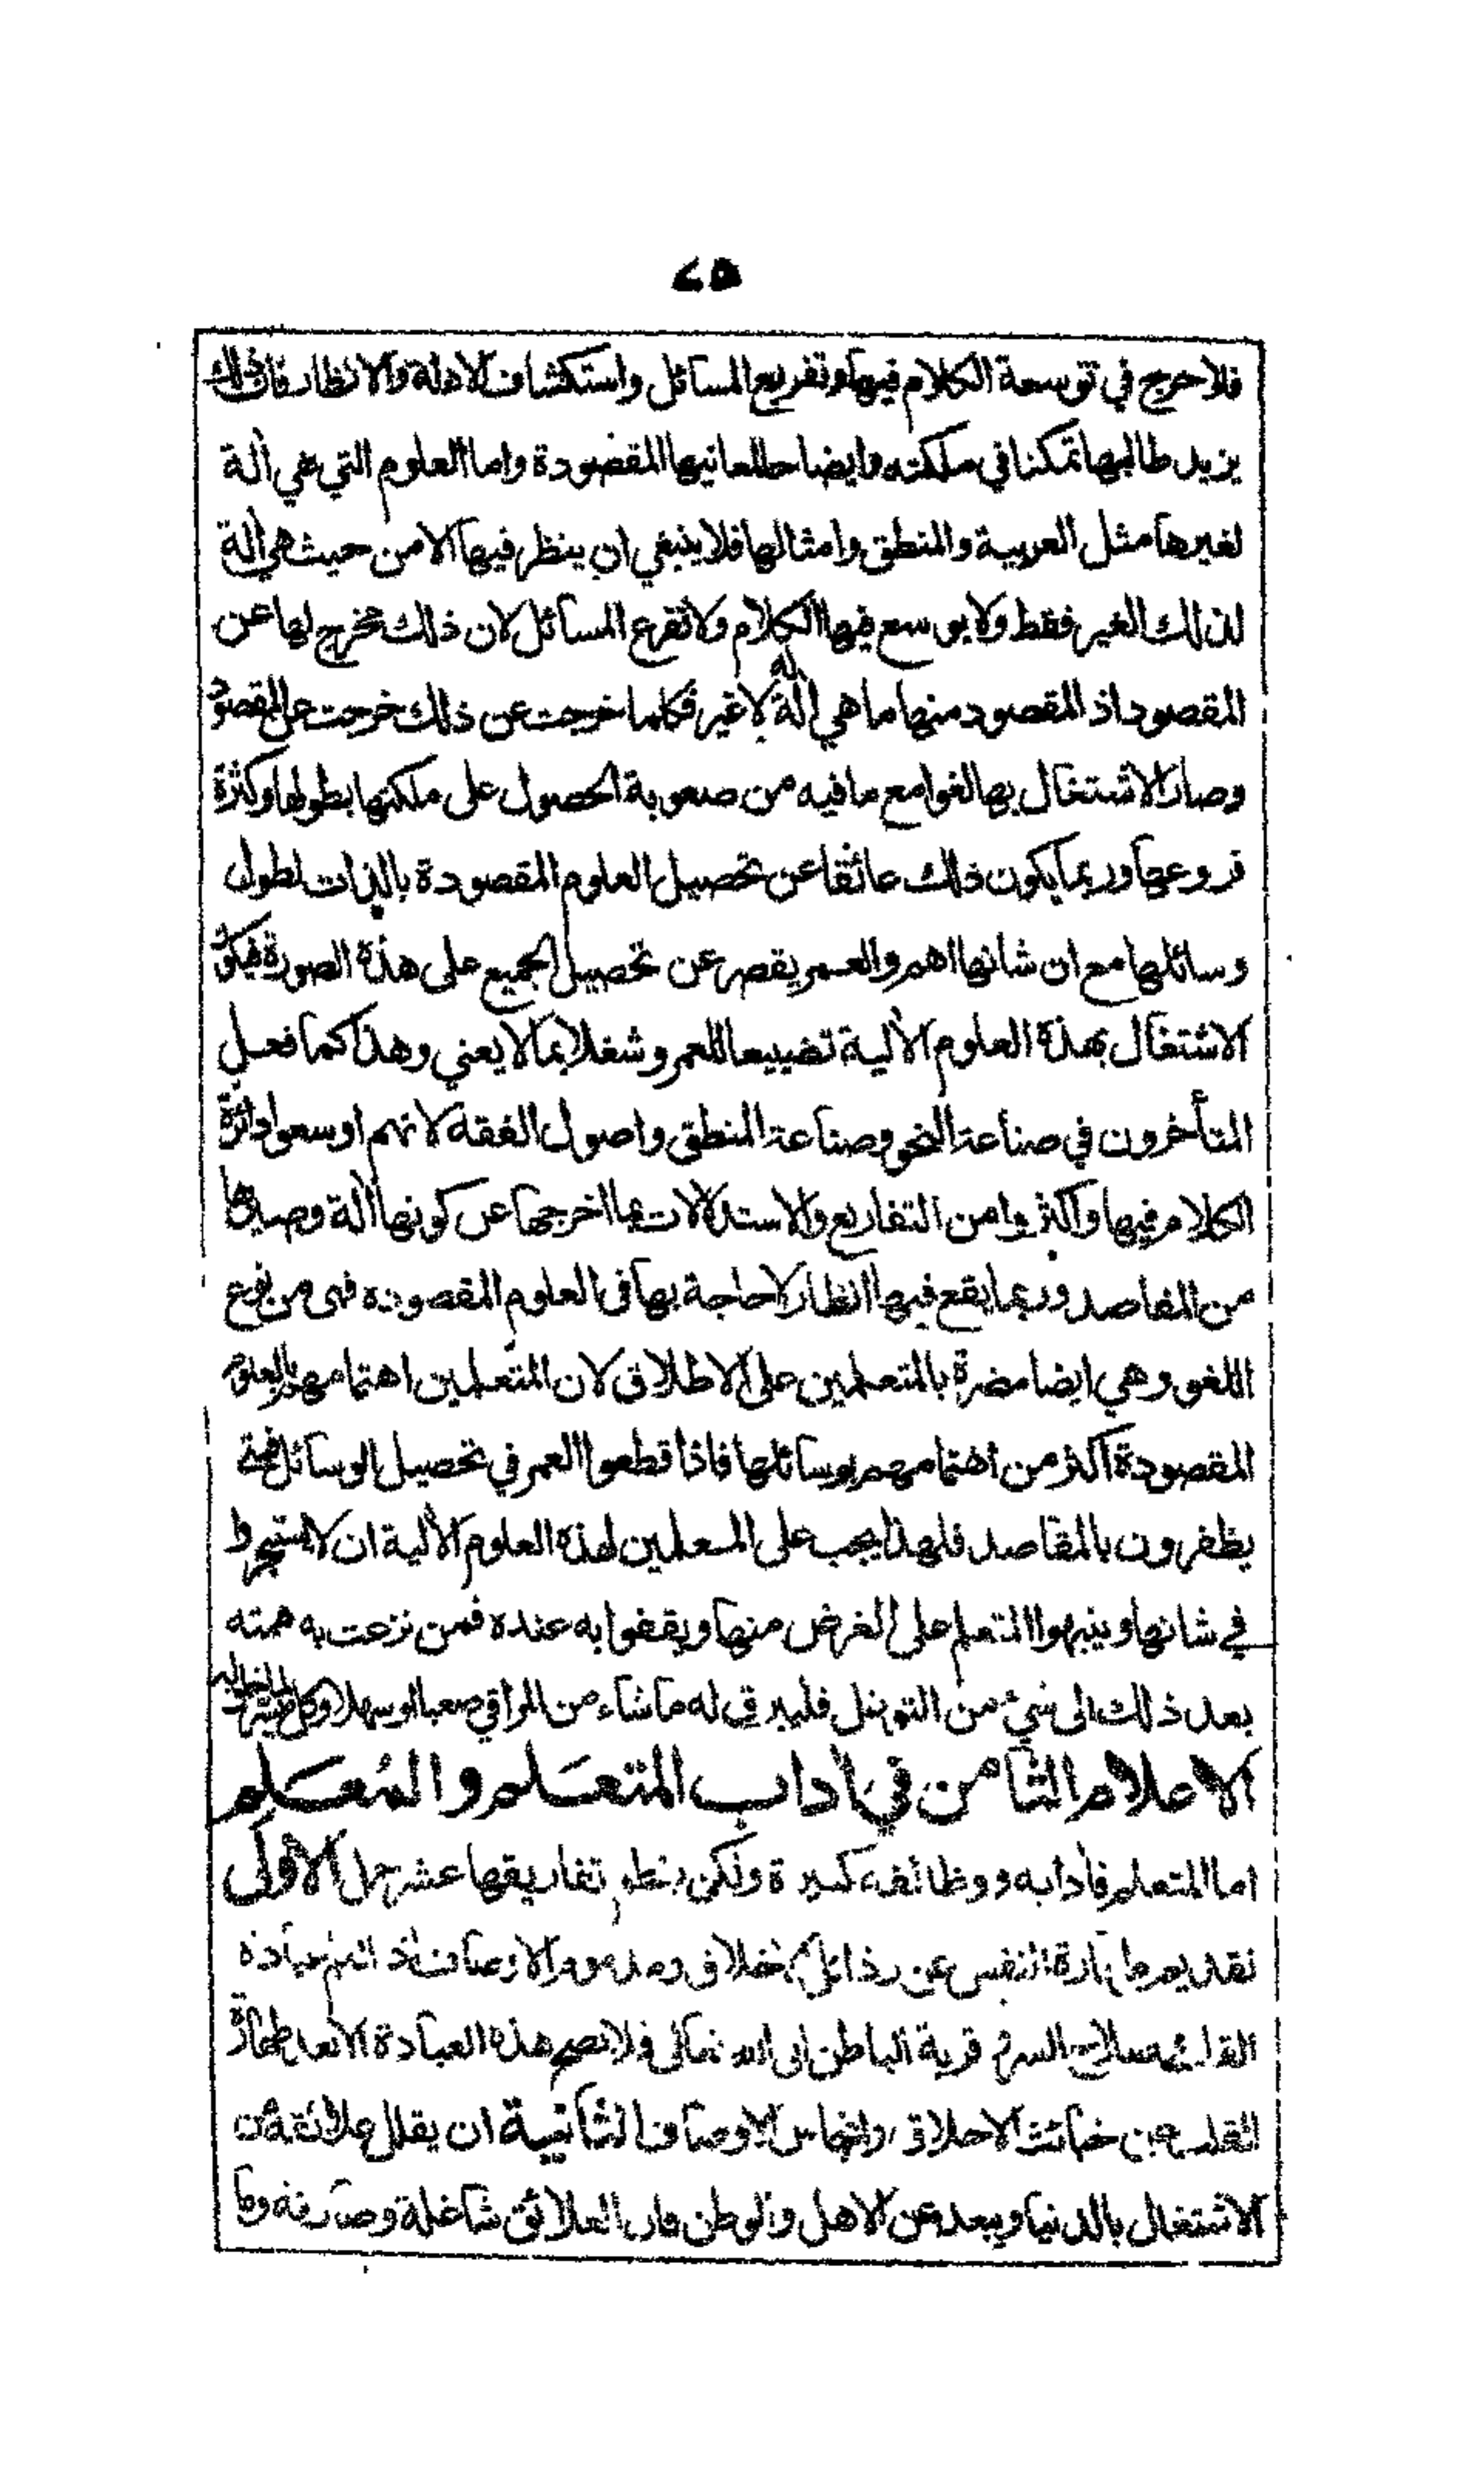 ٢٥
فلا حرج في توسعة الكلام فيها وتفريع المسائل واستكشاف الادلة والانظار فان ذلك
يزيد طالبها تمكنا في ملكته وايضاحا لمعانيها المقصودة واما العلوم التي هي آلة
لغيرها مثل العربية والمنطق وامثالها فلا ينبغي ان ينظر فيها الا من حيث هي آلة
لذلك الغير فقط ولا يوسع فيها الكلام ولا تفرع المسائل لان ذلك مخرج لها عن
المقصود اذ المقصود منها ما هي آلة له لا غير فكلما خرجت عن ذلك خرجت عن المقصود
وصار الاشتغال بها لغوا مع ما فيه من صعوبة الحصول على ملكتها بطولها وكثرة
فروعها وربما يكون ذلك عائقا عن تحصيل العلوم المقصودة بالذات لطول
وسائلها مع ان شانها اهم والعمر يقصر عن تحصيل الجميع على هذه الصورة فيكون
الاشتغال بهذه العلوم الآلية تضييعا للعمر وشغلا بما لا يعني وهذا كما فعل
المتأخرون في صناعة النحو وصناعة المنطق واصول الفقه لانهم اوسعوا دائرة
الكلام فيها واكثروا من التفاريع والاستدلالات بما اخرجها عن كونها آلة وصيرها
من المقاصد وربما يقع فيها انظار لا حاجة بها في العلوم المقصوده فهي من نوع
اللغو وهي ايضا مضرة بالمتعلمين على الاطلاق لان المتعلمين اهتمامهم بالعلوم
المقصودة اكثر من اهتمامهم بوسائلها فاذا قطعوا العمر في تحصيل الوسائل فمتى
يظفرون بالمقاصد فلهذا يجب على المعلمين لهذه العلوم الآلية ان لا يستبحروا
في شانها وينبهوا المتعلم على الغرض منها ويقفوا به عنده فمن نزعت به همته
بعد ذلك الى شيء من التوغل فليرق له ما شاء من المراقي صعبا او سهلا وكل ميسر لما خلق له
الاعلام الثامن في آداب المتعلم والمعلم
اما المتعلم فآدابه ووظائفه كثيرة ولكن ينظم تفاريقها عشر جمل الاولى
تقديم طهارة النفس عن رذائل الاخلاق ومذموم الاوصاف اذ العلم عبادة
القلب وصلاح السر وقربة الباطن الى الله تعالى فلا تصح هذه العبادة الا بعد طهارة
القلب عن خبائث الاخلاق وانجاس الاوصاف الثانية ان يقلل علائقه من
الاشتغال بالدنيا ويبعد عن الاهل والوطن فان العلائق شاغلة وصارفة وما